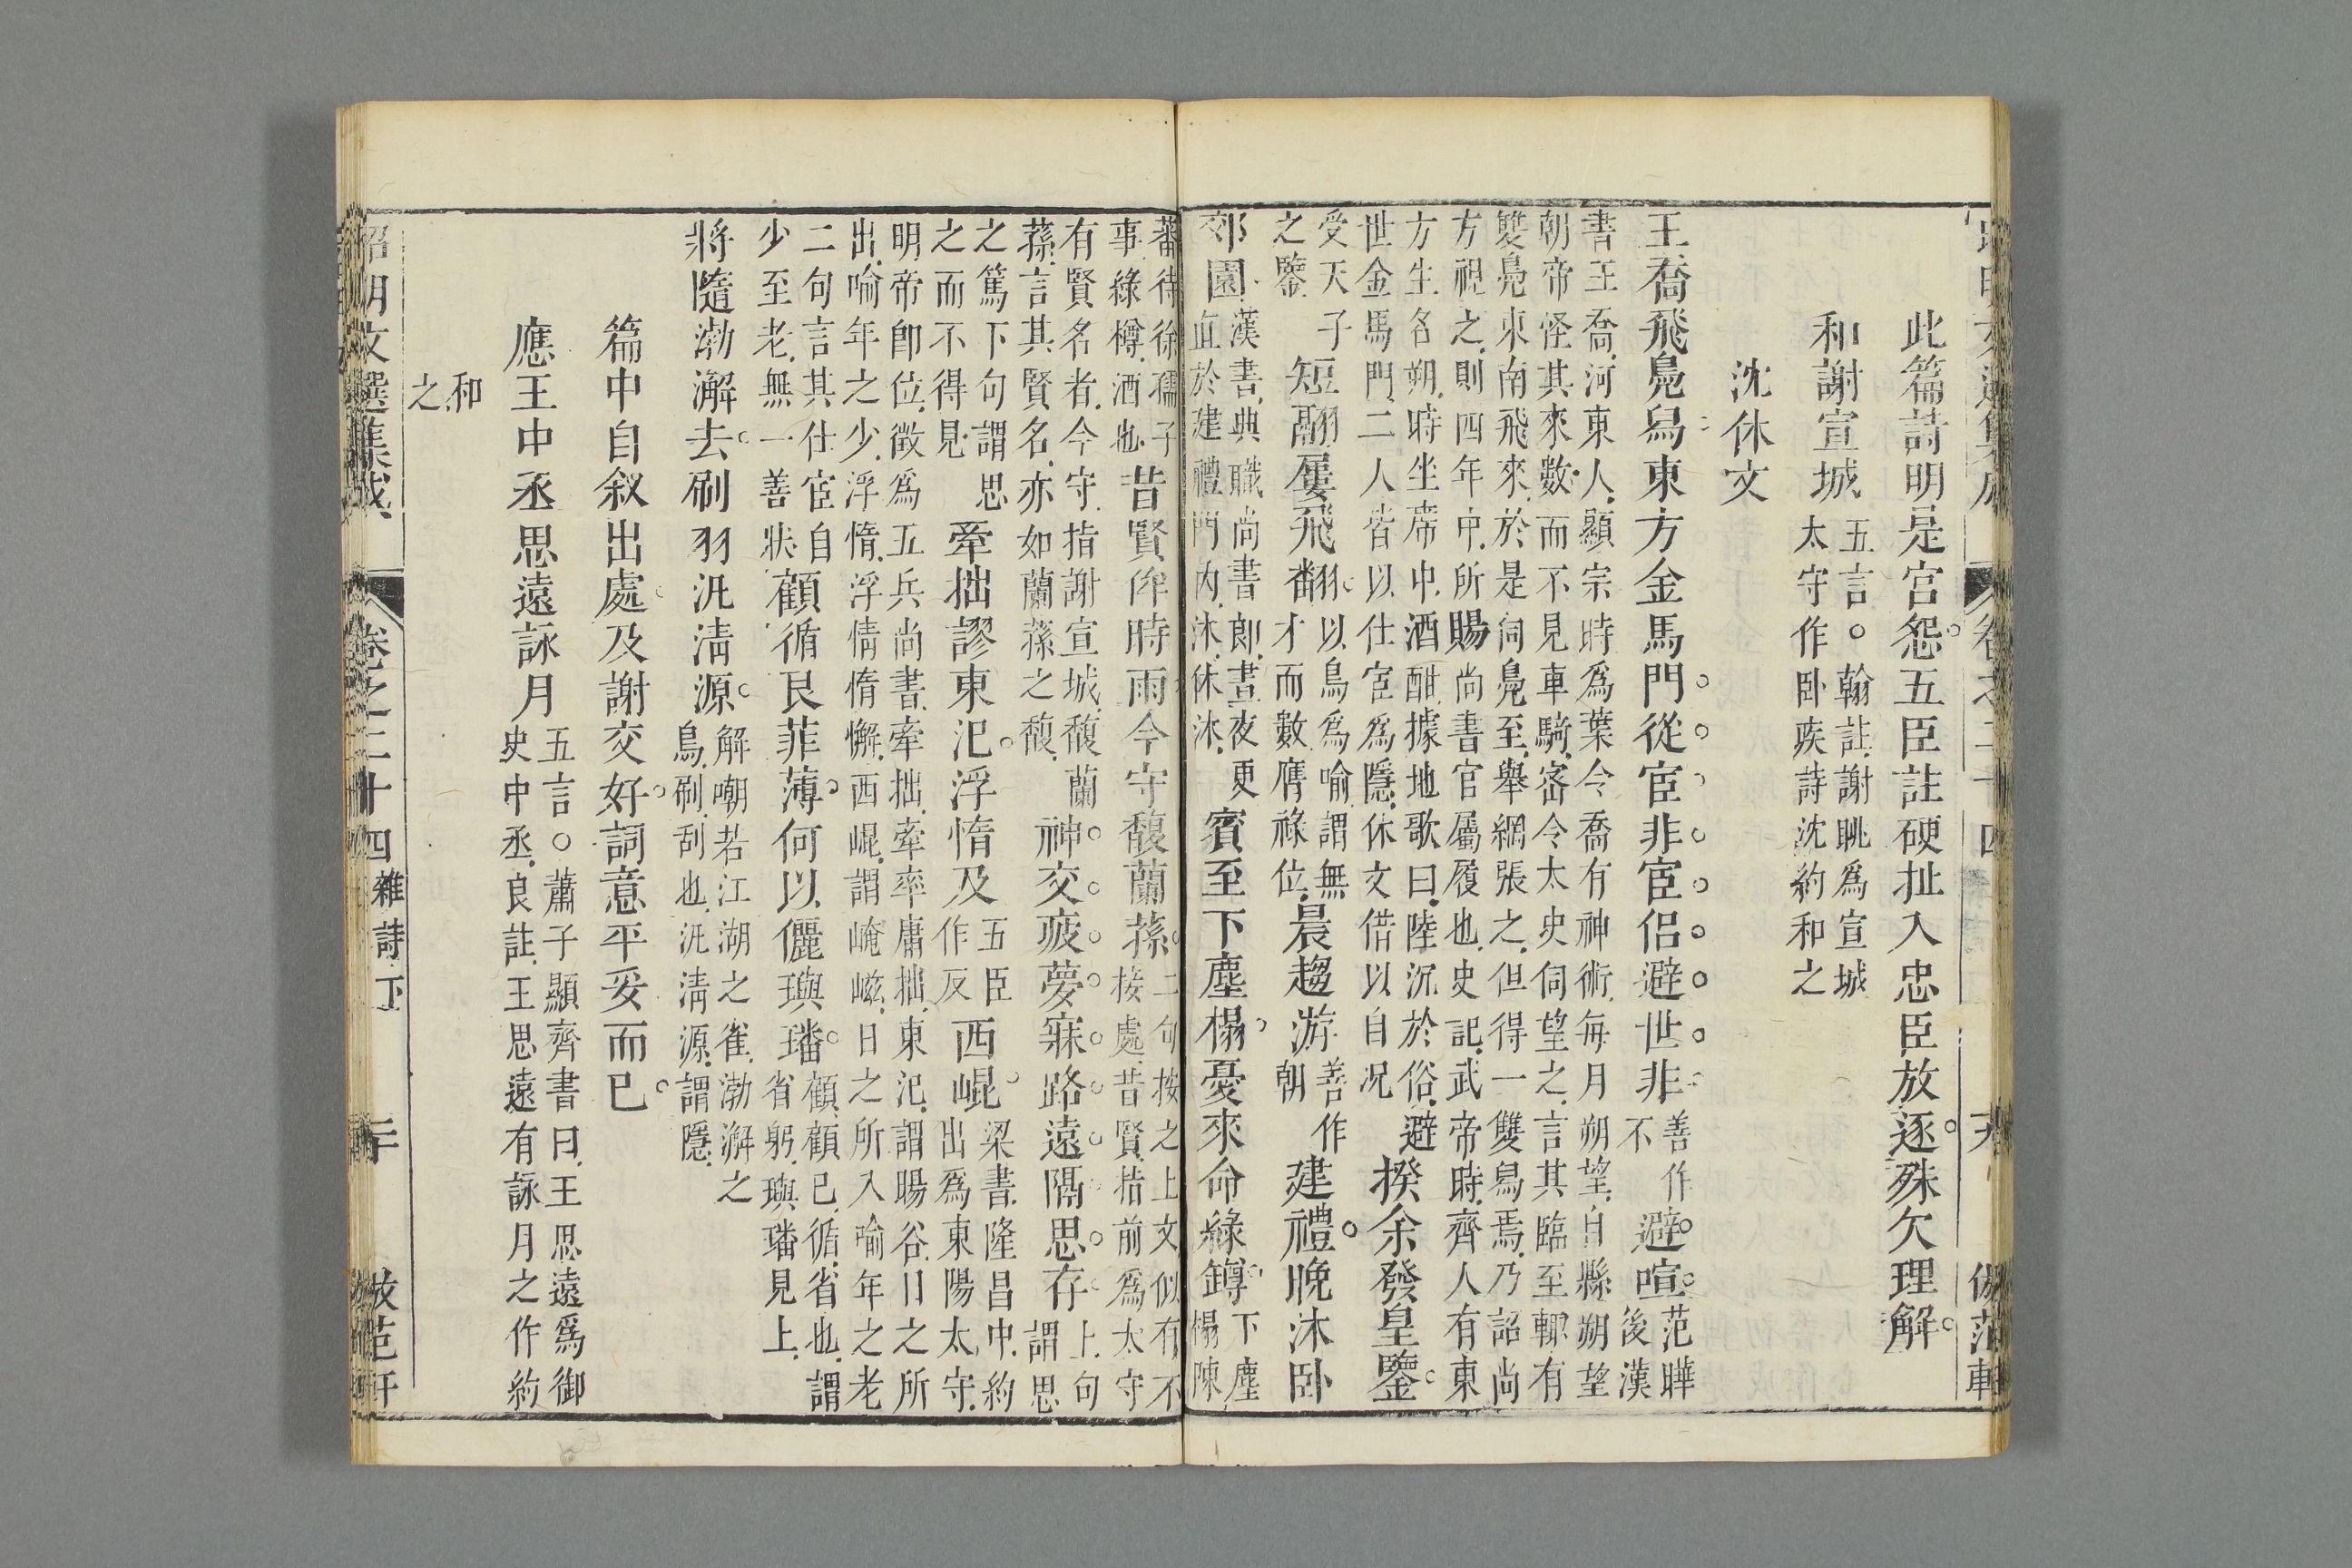 此篇詩明是宮怨五臣註硬扯入忠臣放逐殊欠理解
和謝宣城五言○翰註謝眺為宣城太守作卧疾詩沈約和之
沈休文
王喬飛鳧舄東方金馬門從宦非宦侶避世非善作不避喧范曄後漢
書王喬河東人顯宗時為葉令喬有神術每月朔望自縣朔望
朝帝怪其來數而不見車騎密令太史伺望之言其臨至輙有
雙鳧東南飛來於是伺鳧至舉網張之但得一雙舄焉乃詔尚
方視之則四年中所賜尚書官屬履也史記武帝時齊人有東
方生名朔時坐席中酒酣據地歌曰陸沉於俗避
世金馬門二人皆以仕宦為隱休文借以自况揆余發皇鑒
受天子之鑒短翮屢飛翻以鳥為喻謂無才而數膺祿位晨趨游善作朝建禮晚沐卧
郊園漢書典職尚書郎晝夜更直於建禮門內沐休沐賓至下塵榻憂來命綠罇下塵榻陳
蕃待徐孺子事綠樽酒也昔賢侔時雨今守馥蘭蓀二句按之上文似有不接處昔賢指前為太守
有賢名者今守指謝宣城馥蘭蓀言其賢名亦如蘭蓀之馥神交疲夢寐路遠隔思存上句謂思
之篤下句謂思之而不得見牽拙謬東汜浮惰及五臣作反西崐梁書隆昌中約出為東陽太守
明帝卽位徵為五兵尚書牽拙牽率庸拙東汜謂暘谷日之所
出喻年之少浮惰浮倩惰懈西崐謂崦嵫日之所入喻年之老
二句言其仕宦自少至老無一善狀顧循良菲薄何以儷璵璠顧顧已循省也謂省躬璵璠見上
將隨渤澥去刷羽汎淸源解嘲若江湖之雀渤澥之鳥刷刮也汎淸源謂隱
篇中自叙出處及謝交好詞意平妥而已
應王中丞思遠詠月五言○蕭子顯齊書曰王思遠為御史中丞良註王思遠有詠月之作約
和之
昭明文選集成 卷之二十四 雜詩下 二十 倣范軒